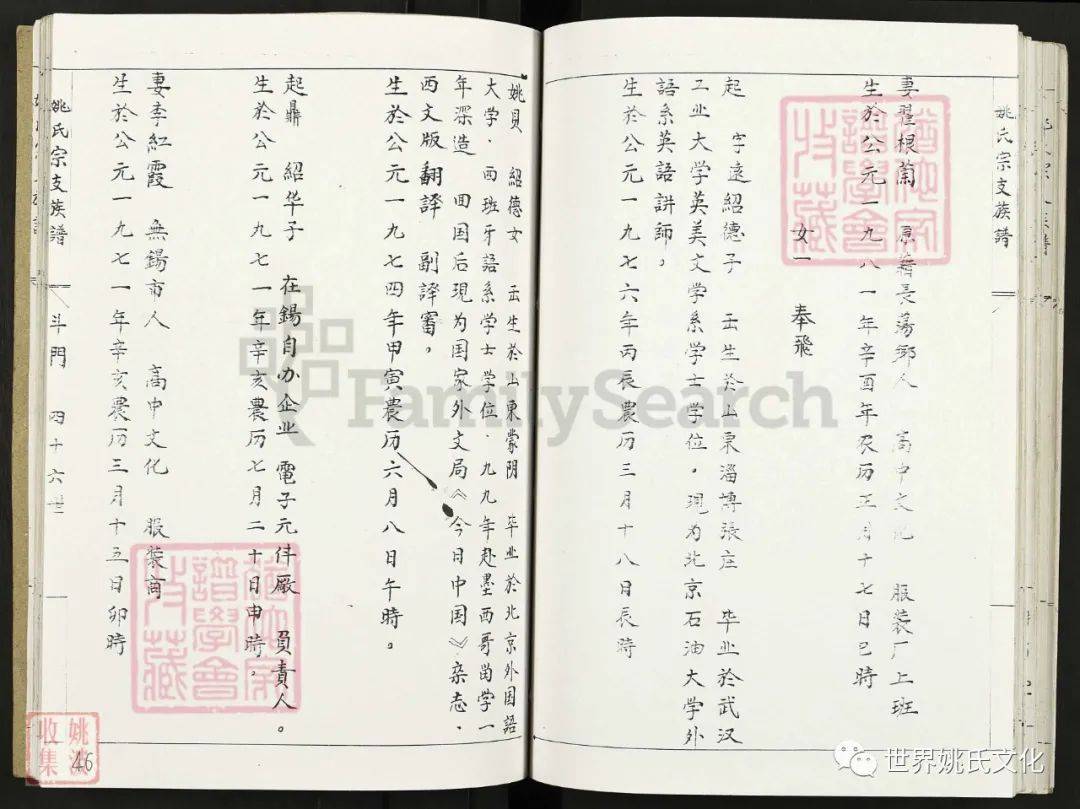 姚氏宗支族譜
妻翟根蘭 原籍長蕩鄉人 高中文化 服装厂上班
生於公元一九八一年辛酉年农历三月十七日巳時
女一 奉飛
起 字遠紹德子 壬生於山东淄博張店 毕业於武汉
工业大学英美文学系学士学位。現为北京石油大学外
語系英語讲師。
生於公元一九七六年丙辰農历三月十八日辰時
姚貝 紹德女 壬生於山東蒙阴 毕业於北京外国語
大学．西班牙語系学士学位．九九年赴墨西哥留学一
年深造 回国后現为国家外文局《今日中国》杂志．
西文版翻譯 副譯審。
生於公元一九七四年甲寅農历六月八日午時。
起鼎 紹华子 在錫自办企业電子元件厰 負責人。
生於公元一九七一年辛亥農历七月二十日申時。
妻李紅霞 無錫市人 高中文化 服装商
生於公元一九七一年辛亥農历三月十五日卯時
姚氏宗支族譜 斗門 四十六世
46
姚波
收集
譜學會
收藏
譜學會
收藏
FamilySearch
世界姚氏文化